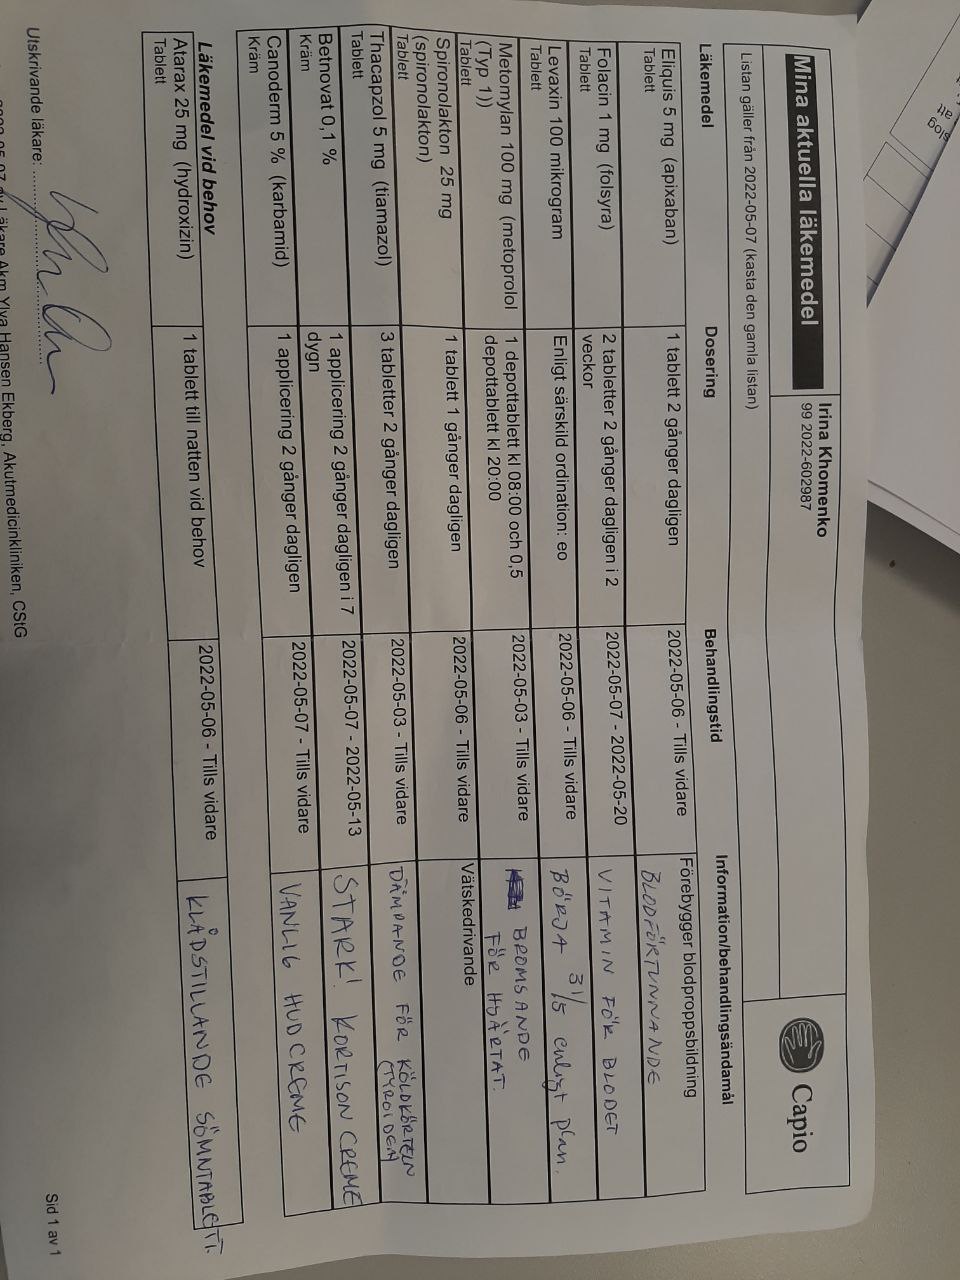 slog
att
Mina aktuella läkemedel
Irina Khomenko
99 2022-602987
Capio
Listan gäller från 2022-05-07 (kasta den gamla listan)
Läkemedel Dosering Behandlingstid Information/behandlingsändamål
Eliquis 5 mg (apixaban)
Tablett
1 tablett 2 gånger dagligen
2022-05-06 - Tills vidare
Förebygger blodproppsbildning
BLODFÖRTUNNANDE
Folacin 1 mg (folsyra)
Tablett
2 tabletter 2 gånger dagligen i 2
veckor
2022-05-07 - 2022-05-20
VITAMIN FÖR BLODET
Levaxin 100 mikrogram
Tablett
Enligt särskild ordination: eo
2022-05-06 - Tills vidare
BÖRJA 31/5 enligt plan.
Metomylan 100 mg (metoprolol
(Typ 1))
Tablett
1 depottablett kl 08:00 och 0,5
depottablett kl 20:00
2022-05-03 - Tills vidare
BROMSANDE
FÖR HJÄRTAT.
Spironolakton 25 mg
(spironolakton)
Tablett
1 tablett 1 gånger dagligen
2022-05-06 - Tills vidare
Vätskedrivande
Thacapzol 5 mg (tiamazol)
Tablett
3 tabletter 2 gånger dagligen
2022-05-03 - Tills vidare
DÄMPANDE FÖR KÖLDKÖRTELN
(TYROIDEA)
Betnovat 0,1 %
Kräm
1 applicering 2 gånger dagligen i 7
dygn
2022-05-07 - 2022-05-13
STARK! KORTISON CREME
Canoderm 5 % (karbamid)
Kräm
1 applicering 2 gånger dagligen
2022-05-07 - Tills vidare
VANLIG HUDCREME
Läkemedel vid behov
Atarax 25 mg (hydroxizin)
Tablett
1 tablett till natten vid behov
2022-05-06 - Tills vidare
KLÅDSTILLANDE SÖMNTABLETT.
Utskrivande läkare:
Sid 1 av 1
2022-05-07 av Läkare Akm Ylva Hansen Ekberg, Akutmedicinkliniken, CStG